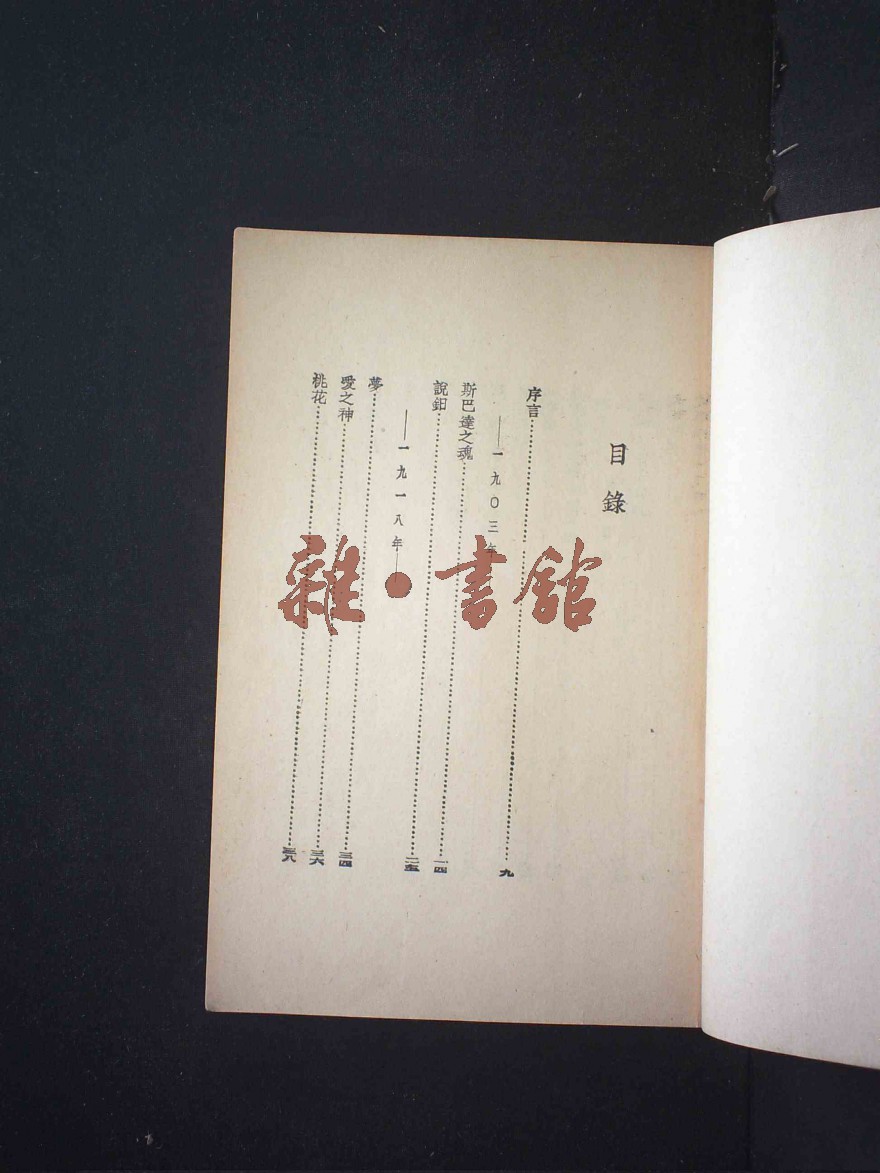 目錄
序言……九
——一九〇三年——
斯巴達之魂……一四
說鈤……二五
——一九一八年——
夢……三四
愛之神……三六
桃花……三八
雜·書館